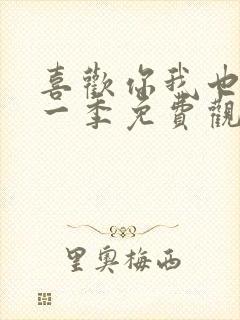 喜歡你我也
一季免費觀
里奧梅西